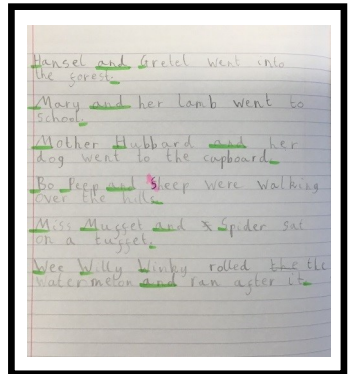 Hansel and Gretel went into
the forest.
Mary and her lamb went to
school.
Mother Hubbard and her
dog went to the cupboard.
Bo Peep and Sheep were walking
over the hills.
Miss Mugget and Spider sat
on a tugget.
Wee Willy Winky rolled the the
watermelon and ran after it.